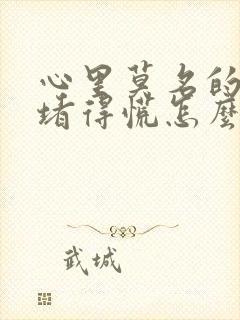 心里莫名的
堵得慌怎麼
武城